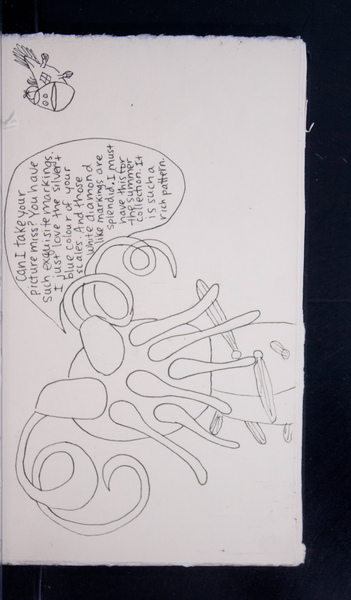 Can I take your
picture miss? You have
such exquisite markings.
I just love the silver +
blue colour of your
scales. And those
white diamond
like markings are
splendid. I must
have this for
the summer
collection. It
is such a
rich pattern.